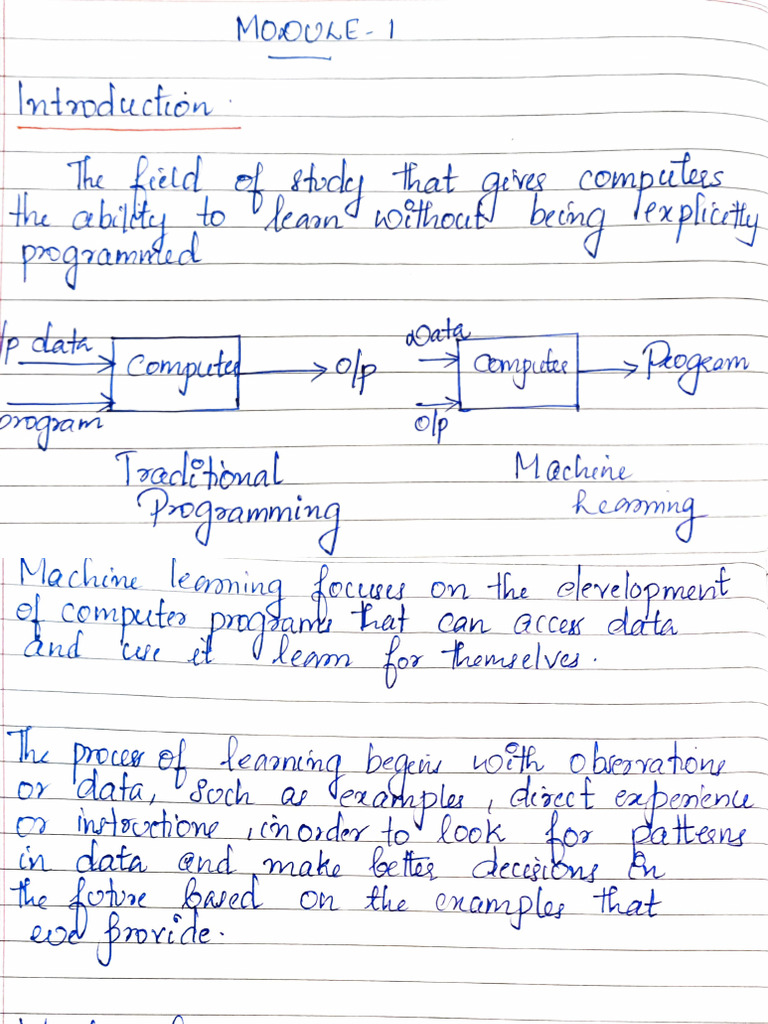 MODULE-1
Introduction.
The field of study that gives computers
the ability to learn without being explicitly
programmed
/p data
Computer
O/p
Data
Computer
Program
program
O/p
Traditional
Programming
Machine
Learning
Machine learning focuses on the development
of computer programs that can access data
and use it learn for themselves.
The process of learning begins with observations
or data, such as examples, direct experience
or instructions, in order to look for patterns
in data and make better decisions in
the future based on the examples that
we provide.